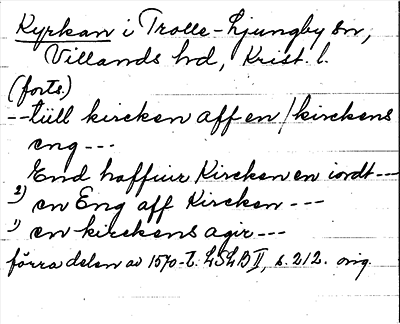 Kyrkan i Trolle-Ljungby sn,
Villands hd, Krist. l.
(forts.)
--tüll kircken aff en / kirckens
eng ---
End haffuer Kircken en iordt---
2) en Eng aff Kircken ---
1) en kirckens agir---
förra delen av 1570-t. LSLB II, s. 212. orig.